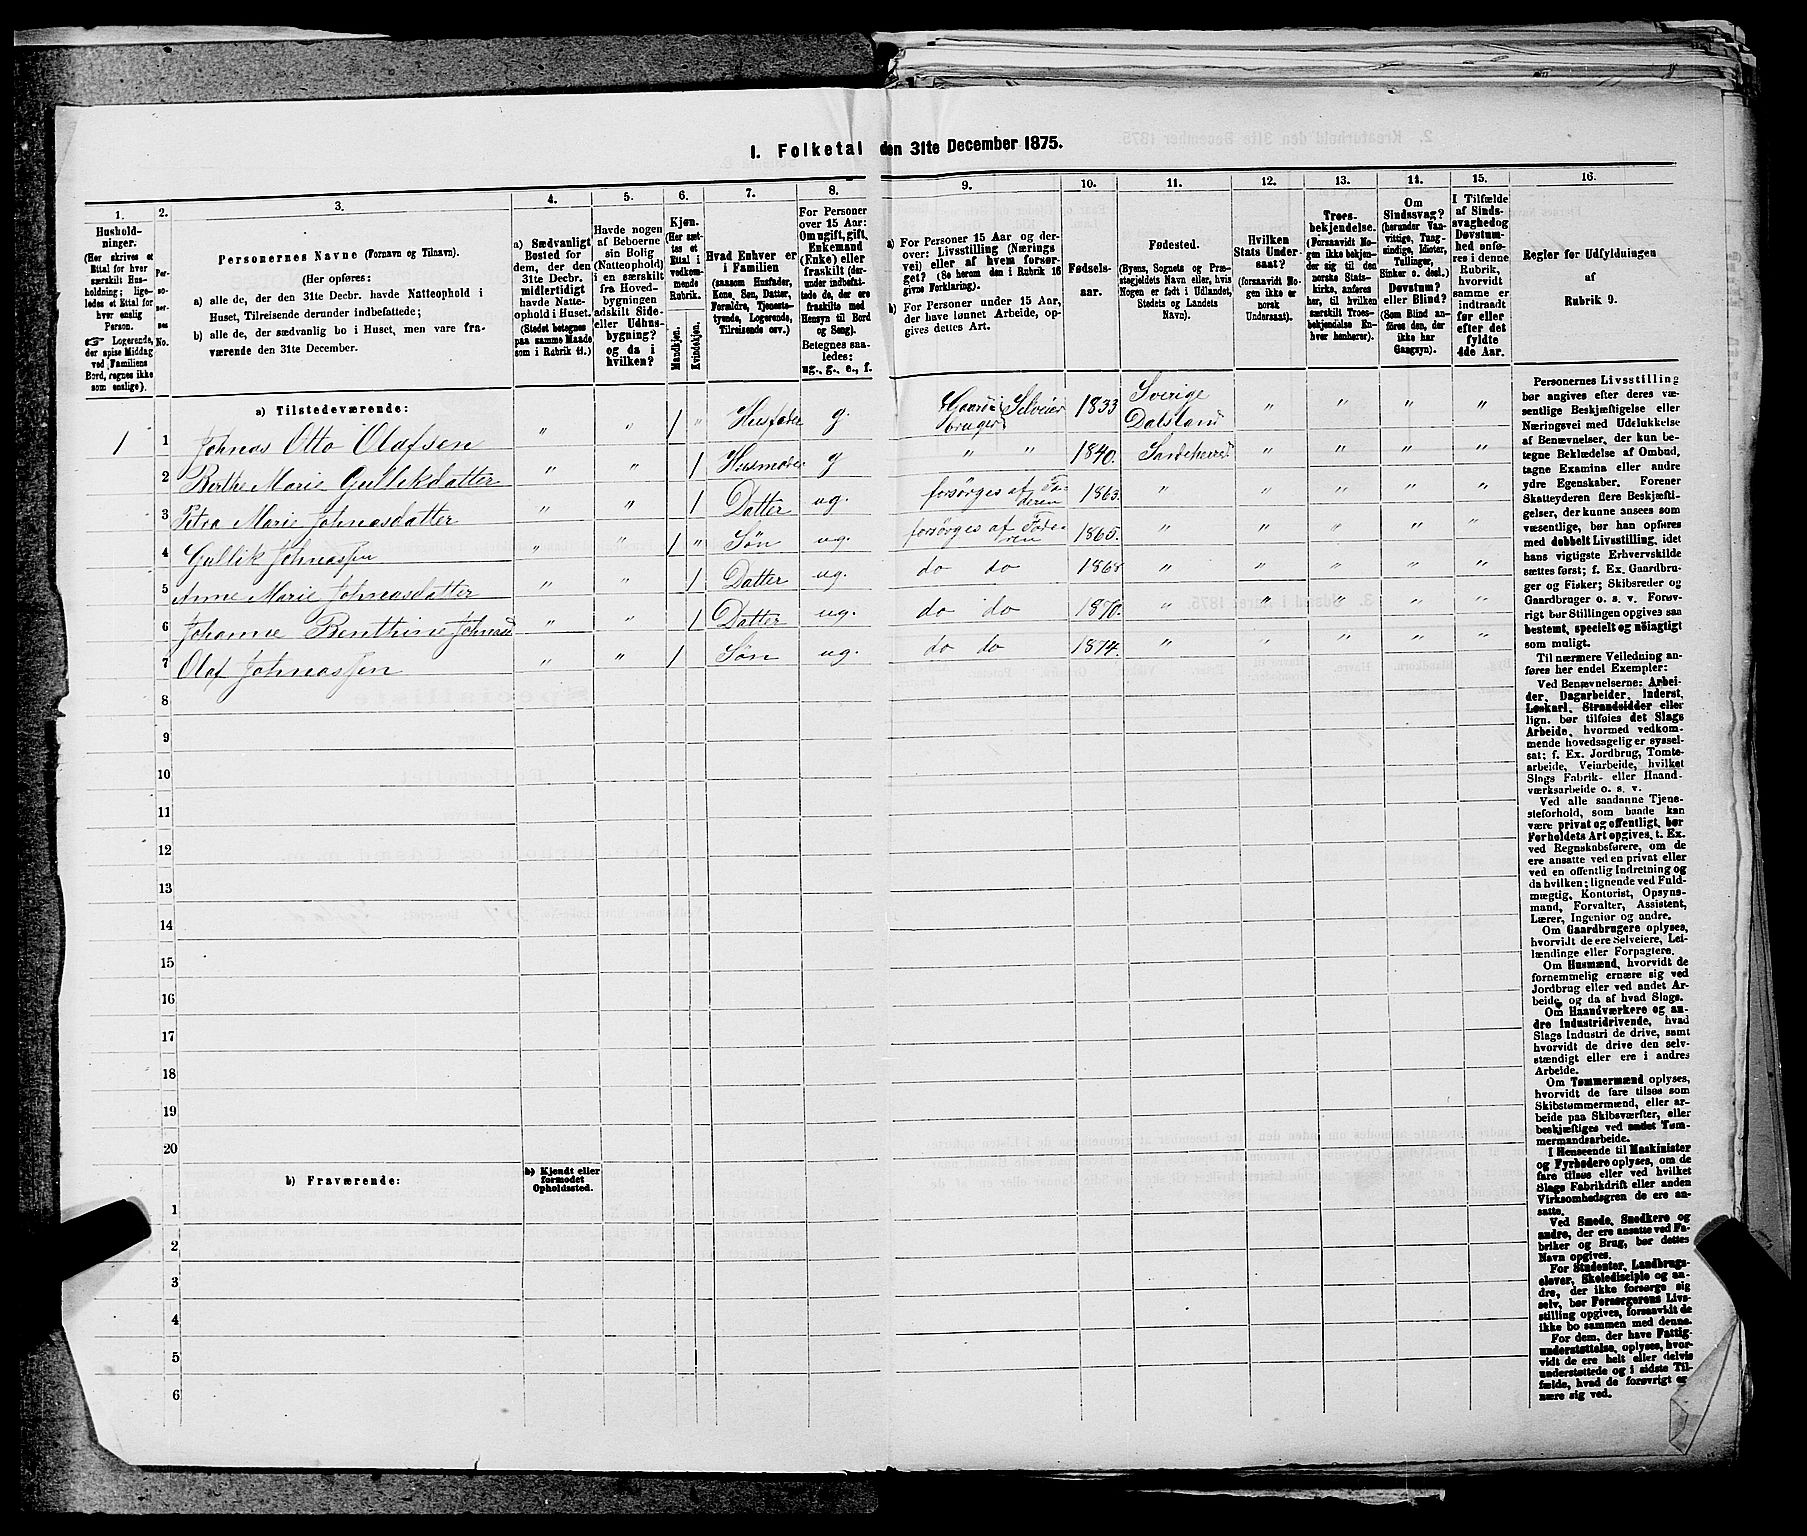 1. Folketal den 31te December 1875.
1.
Hushold-
ninger.
(Her skrives et
Ettal for hver
særskilt Hus-
holdning; lige-
ledes et Ettal for
hver enslig
Person.
☞ Logerende,
der spise Middag
ved Familiens
Bord, regnes ikke
som enslige).
2.
No.
3.
Personernes Navne (Fornavn og Tilnavn).
(Her opføres:
a) alle de, der den 31te Decbr. havde Natteophold i
Huset, Tilreisende derunder indbefattede;
b) alle de, der sædvanlig bo i Huset, men vare fra-
værende den 31te December.
4.
a) Sædvanligt
Bosted for
dem, der den
31te Decbr.
midlertidigt
havde Natte-
ophold i Huset.
(Stedet betegnes
paa samme Maade
som i Rubrik 11.)
5.
Havde nogen
af Beboerne
sin Bolig
(Natteophold)
i en særskilt
fra Hoved-
bygningen
adskilt Side-
eller Udhus-
bygning?
og da i
hvilken?
6.
Kjøn.
(Her sæt-
tes et
Ettal i
vedkom-
mende
Rubrik.
Mandkjøn.
Kvindekjøn.
7.
Hvad Enhver er
i Familien
(saasom Husfader,
Kone, Søn, Datter,
Forældre, Tjeneste-
tyende, Logerende,
Tilreisende osv.)
8.
For Personer
over 15 Aar:
Om ugift, gift,
Enkemand
(Enke) eller
fraskilt (der-
under indbefat-
tede de, der ere
fraskilte med
Hensyn til Bord
og Seng).
Betegnes saa-
ledes:
ug., g., e., f.
9.
a) For Personer 15 Aar og der-
over: Livsstilling (Nærings-
vei) eller af hvem forsør-
get? (Se herom den i Rubrik 16
givne Forklaring).
b) For Personer under 15 Aar,
der have lønnet Arbeide, op-
gives dettes Art.
10.
Fødsels-
aar.
11.
Fødested.
(Byens, Sognets og Præ-
stegjeldets Navn eller, hvis
Nogen er født i Udlandet,
Stedets og Landets
Navn).
12.
Hvilken
Stats Under-
saat?
(forsaavidt No-
gen ikke er
norsk
Undersaat).
13.
Troes-
bekjendelse.
(Forsaavidt No-
gen ikke bekjen-
der sig til den
norske Stats-
kirke, anføres
her, til hvilken
særskilt Troes-
bekjendelse En-
hver henhører).
14.
Om
Sindssvag?
(herunder Van-
vittige, Tung-
sindige, Idioter,
Tullinger,
Sinker o. desl.)
Døvstum?
eller Blind?
(Som Blind an-
føres den, der
ikke har
Gangsyn).
15.
I Tilfælde
af Sinds-
svaghed og
Døvstum-
hed anfø-
res i denne
Rubrik,
hvorvidt
samme er
indtraadt
før eller
efter det
fyldte
4de Aar.
16.
Regler for Udfyldningen
af
Rubrik 9.
a) Tilstedeværende:
1 1 Johnas Otto Olafsen " " 1 " Husfader g. Gaard-bruger Selveier 1833 Sverige Dalsland " " " "
2 Berthe Marie Gullikdatter " " 1 Husmoder g " " 1840. Sandeherred " " " "
3 Petra Marie Johnasdatter " " 1 Datter ug. forsørges af Faderen 1863. " " " " "
4 Gullik Johnassen " " 1 " Søn ug. forsørges af Faderen 1865. " " " " "
5 Anne Marie Johnasdatter " " 1 Datter ug. do do 1868 " " " " "
6 Johanne Benthine Johnasd " " 1 Datter ug. do do 1870. " " " " "
7 Olaf Johnassen " " 1 Søn ug. do do 1874. " " " " "
8
9
10
11
12
13
14
15
16
17
18
19
20
b) Fraværende:
b) Kjendt eller
formodet
Opholdssted.
1
2
3
4
5
6
Personernes Livsstilling
bør angives efter deres væ-
sentlige Beskjæftigelse eller
Næringsvei med Udelukkelse
af Benævnelser, der kun be-
tegne Beklædelse af Ombud,
tagne Examina eller andre
ydre Egenskaber. Forener
Skatteyderen flere Beskjæfti-
gelser, der kunne ansees som
væsentlige, bør han opføres
med dobbelt Livsstilling, idet
hans vigtigste Erhvervskilde
sættes først; f. Ex. Gaardbru-
ger og Fisker; Skibsreder og
Gaardbruger o. s. v. Forøv-
rigt bør Stillingen opgives saa
bestemt, specielt og nöiagtigt
som muligt.
Til nærmere Veiledning an-
føres her endel Exempler:
Ved Benævnelserne: Arbei-
der, Dagarbeider, Inderst,
Løskarl, Strandsidder eller
lign. bør tilføies det Slags
Arbeide, hvormed vedkom-
mende hovedsagelig er syssel-
sat; f. Ex. Jordbrug, Tomte-
arbeide, Veiarbeide, hvilket
Slags Fabrik- eller Haand-
værksarbeide o. s. v.
Ved alle saadanne Tjene-
steforhold, som baade kan
være privat og offentligt, bør
Forholdets Art opgives, t. Ex.
ved Regnskabsførere, om de
ere ansatte ved en privat eller
ved en offentlig Indretning og
da hvilken; lignende ved Fuld-
mægtig, Kontorist, Opsyns-
mand, Forvalter, Assistent,
Lærer, Ingeniør og andre.
Om Gaardbrugere oplyses,
hvorvidt de ere Selveiere, Lei-
lændinge eller Forpagtere.
Om Husmænd, hvorvidt de
fornemmelig ernære sig ved
Jordbrug eller ved andet Ar-
beide, og da af hvad Slags.
Om Haandværkere og an-
dre industridrivende, hvad
Slags Industri de drive, samt
hvorvidt de drive den selv-
stændigt eller ere i andres
Arbeide.
Om Tømmermænd oplyses,
hvorvidt de fare tilsøs som
Skibstømmermænd, eller ar-
beide paa Skibsværfter, eller
beskjæftiges ved andet Tøm-
mermandsarbeide.
I Henseende til Maskinister
og Fyrbødere oplyses, om de
fare tilsøs eller ved hvilket
Slags Fabrikdrift eller anden
Virksomhedsgren de ere an-
satte.
Ved Smede, Snedkere og
andre, der ere ansatte ved Fa-
briker og Brug, bør dettes
Navn opgives.
For Studenter, Landbrugs-
elever, Skoledisciple og an-
dre, der ikke forsørge sig
selv, bør Forsørgerens Livs-
stilling opgives, forsaavidt de
ikke bo sammen med denne.
For dem, der have Fattig-
understøttelse, oplyses, hvor-
vidt de ere helt eller delvis
understøttede og i sidste Til-
fælde, hvad de forøvrigt er-
nære sig ved.